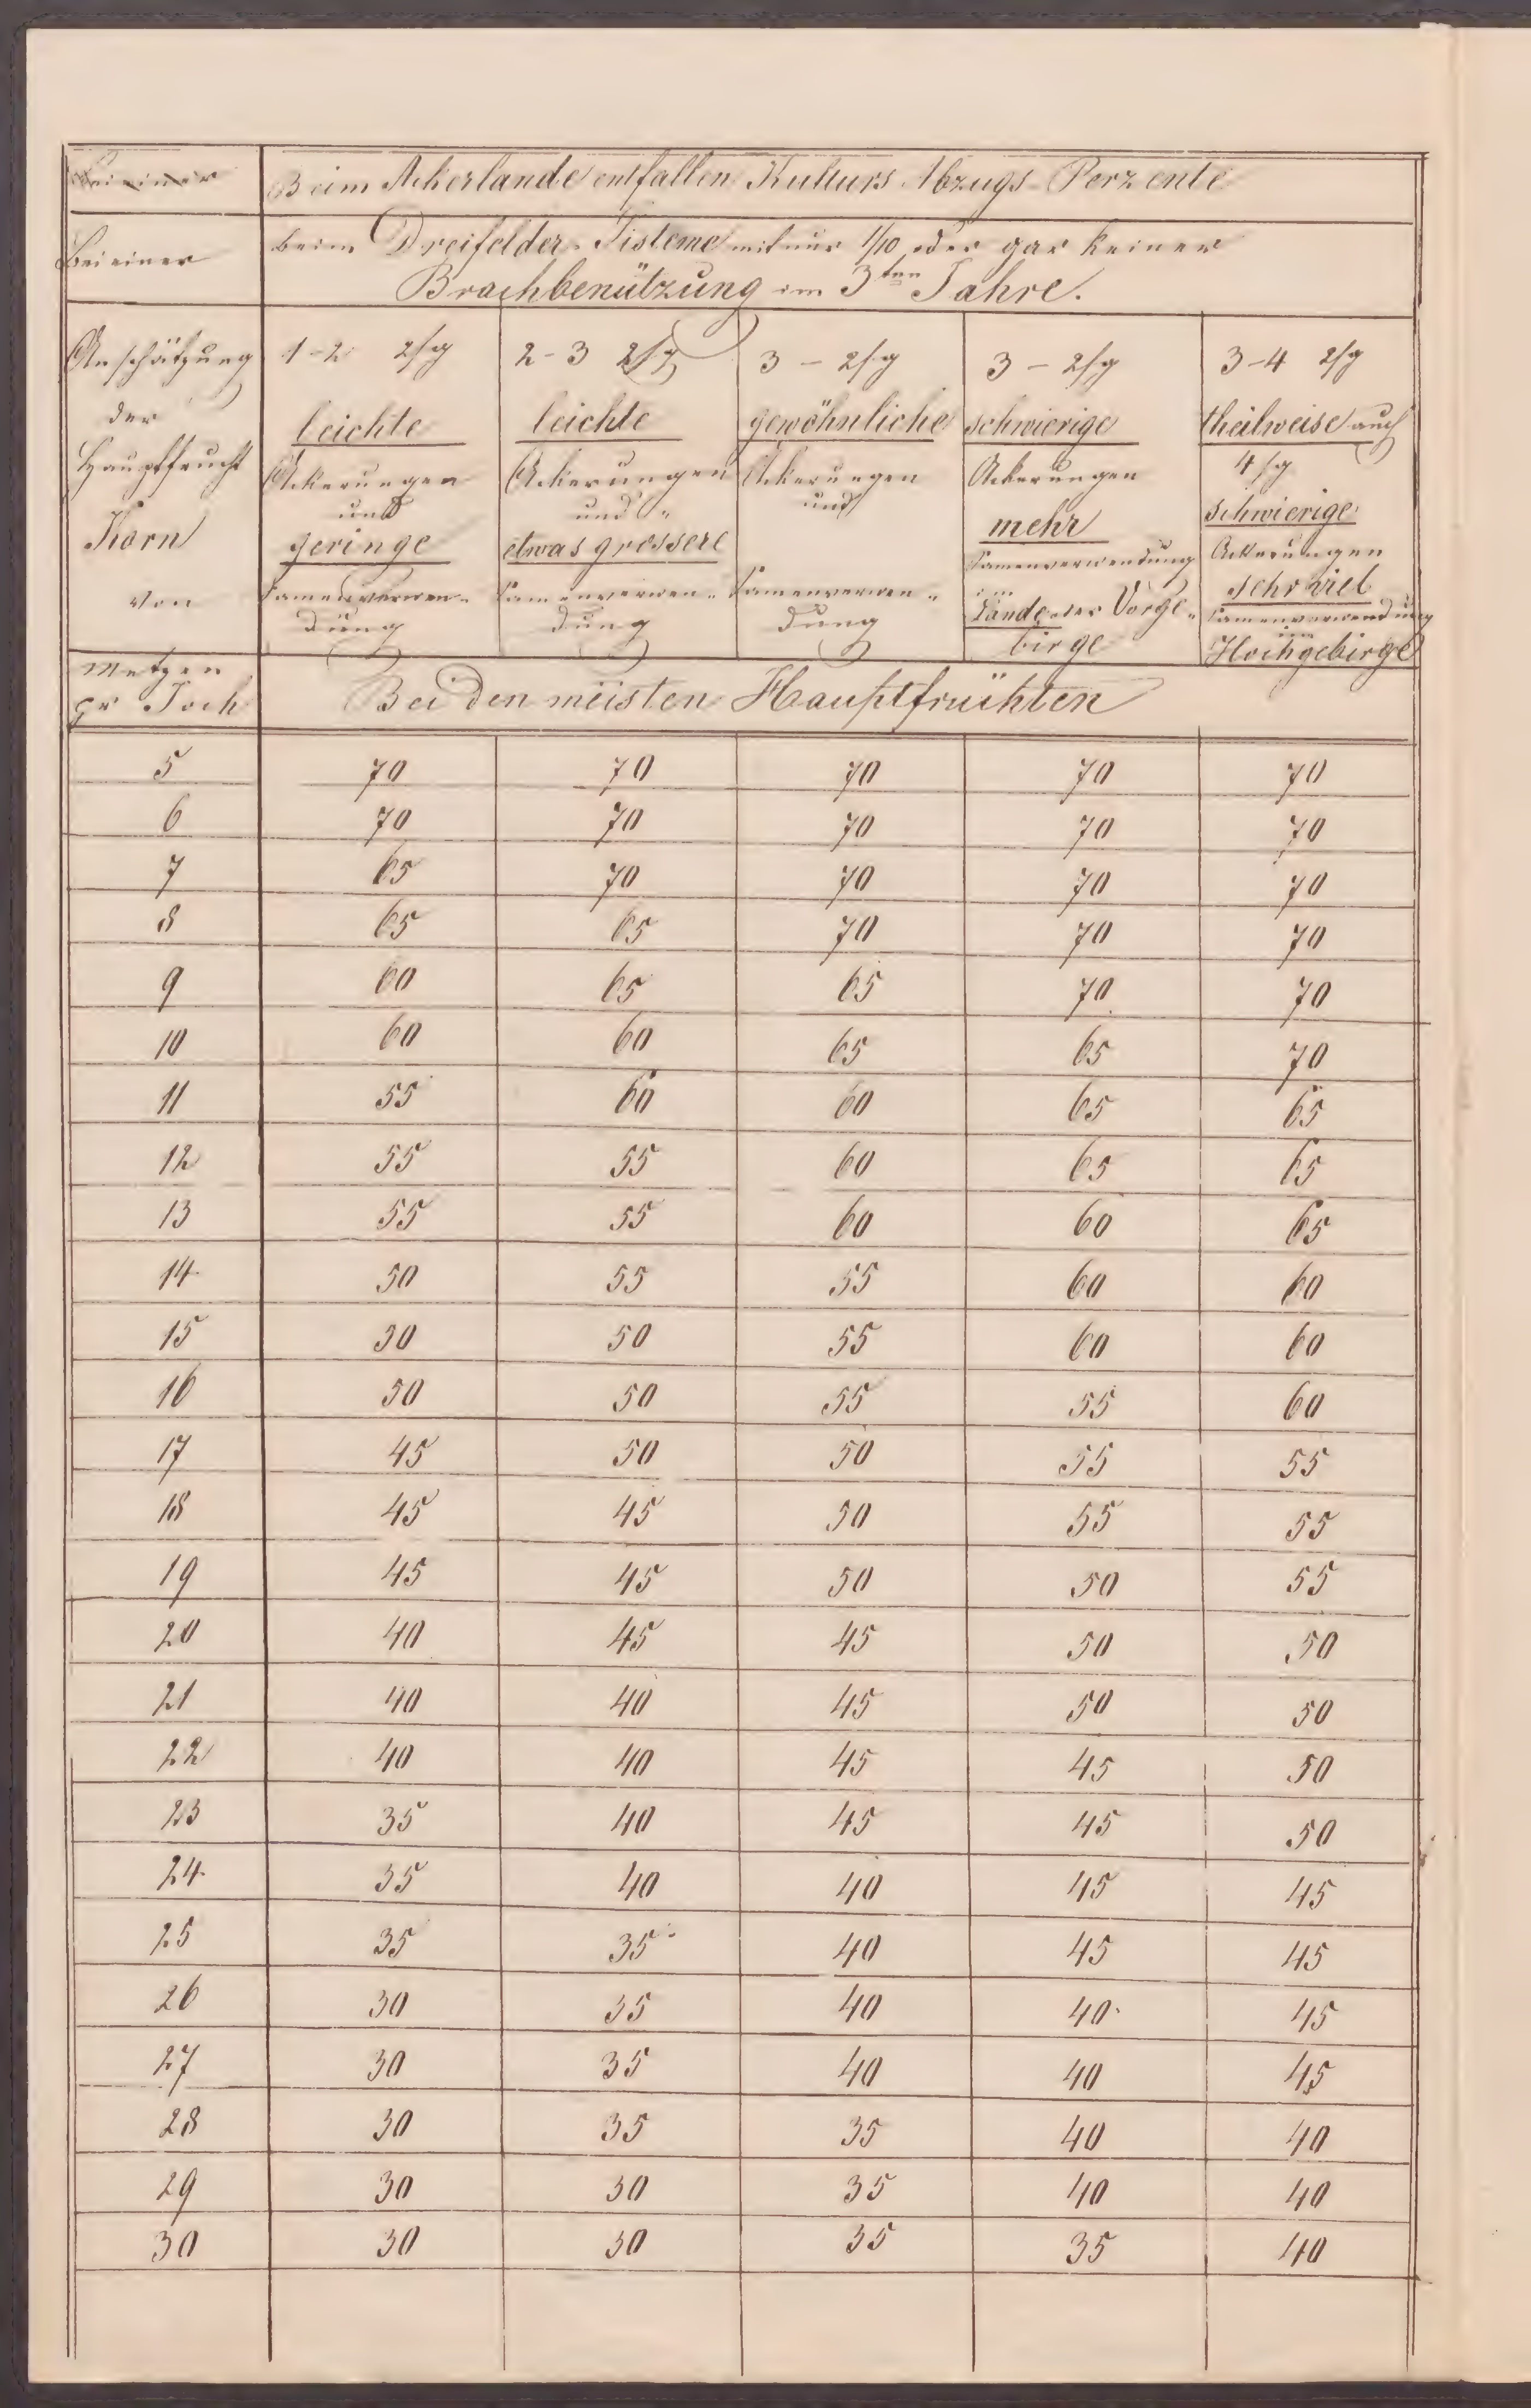 Bei einer
Beim Ackerlande entfallen Kulturs Abzugs-Perzente
Bei einer
beim Dreifelder-Sisteme mit nur 1/10 oder gar keiner
Brachbenützung im 3ten Jahre.
Anschätzung der Hauptfrucht Korn von
1-2 2/g leichte Ackerungen und geringe Samenverwendung
2-3 2/g leichte Ackerungen und etwas grossere Samenverwendung
3 - 2/g gewöhnliche Ackerungen und Samenverwendung
3 - 2/g schwierige Ackerungen mehr Samenverwendung im Lande der Vorgebirge
3-4 2/g theilweise auch 4/g schwierige Ackerungen sehr viel Samenverwendung im Hochgebirge
Metzen
pr Joch
Bei den meisten Hauptfrüchten
5 70 70 70 70 70
6 70 70 70 70 70
7 65 70 70 70 70
8 65 65 70 70 70
9 60 65 65 70 70
10 60 60 65 65 70
11 55 60 60 65 65
12 55 55 60 65 65
13 55 55 60 60 65
14 50 55 55 60 60
15 50 50 55 60 60
16 50 50 55 55 60
17 45 50 50 55 55
18 45 45 50 55 55
19 45 45 50 50 55
20 40 45 45 50 50
21 40 40 45 50 50
22 40 40 45 45 50
23 35 40 45 45 50
24 35 40 40 45 45
25 35 35 40 45 45
26 30 35 40 40 45
27 30 35 40 40 45
28 30 35 35 40 40
29 30 30 35 40 40
30 30 30 35 35 40